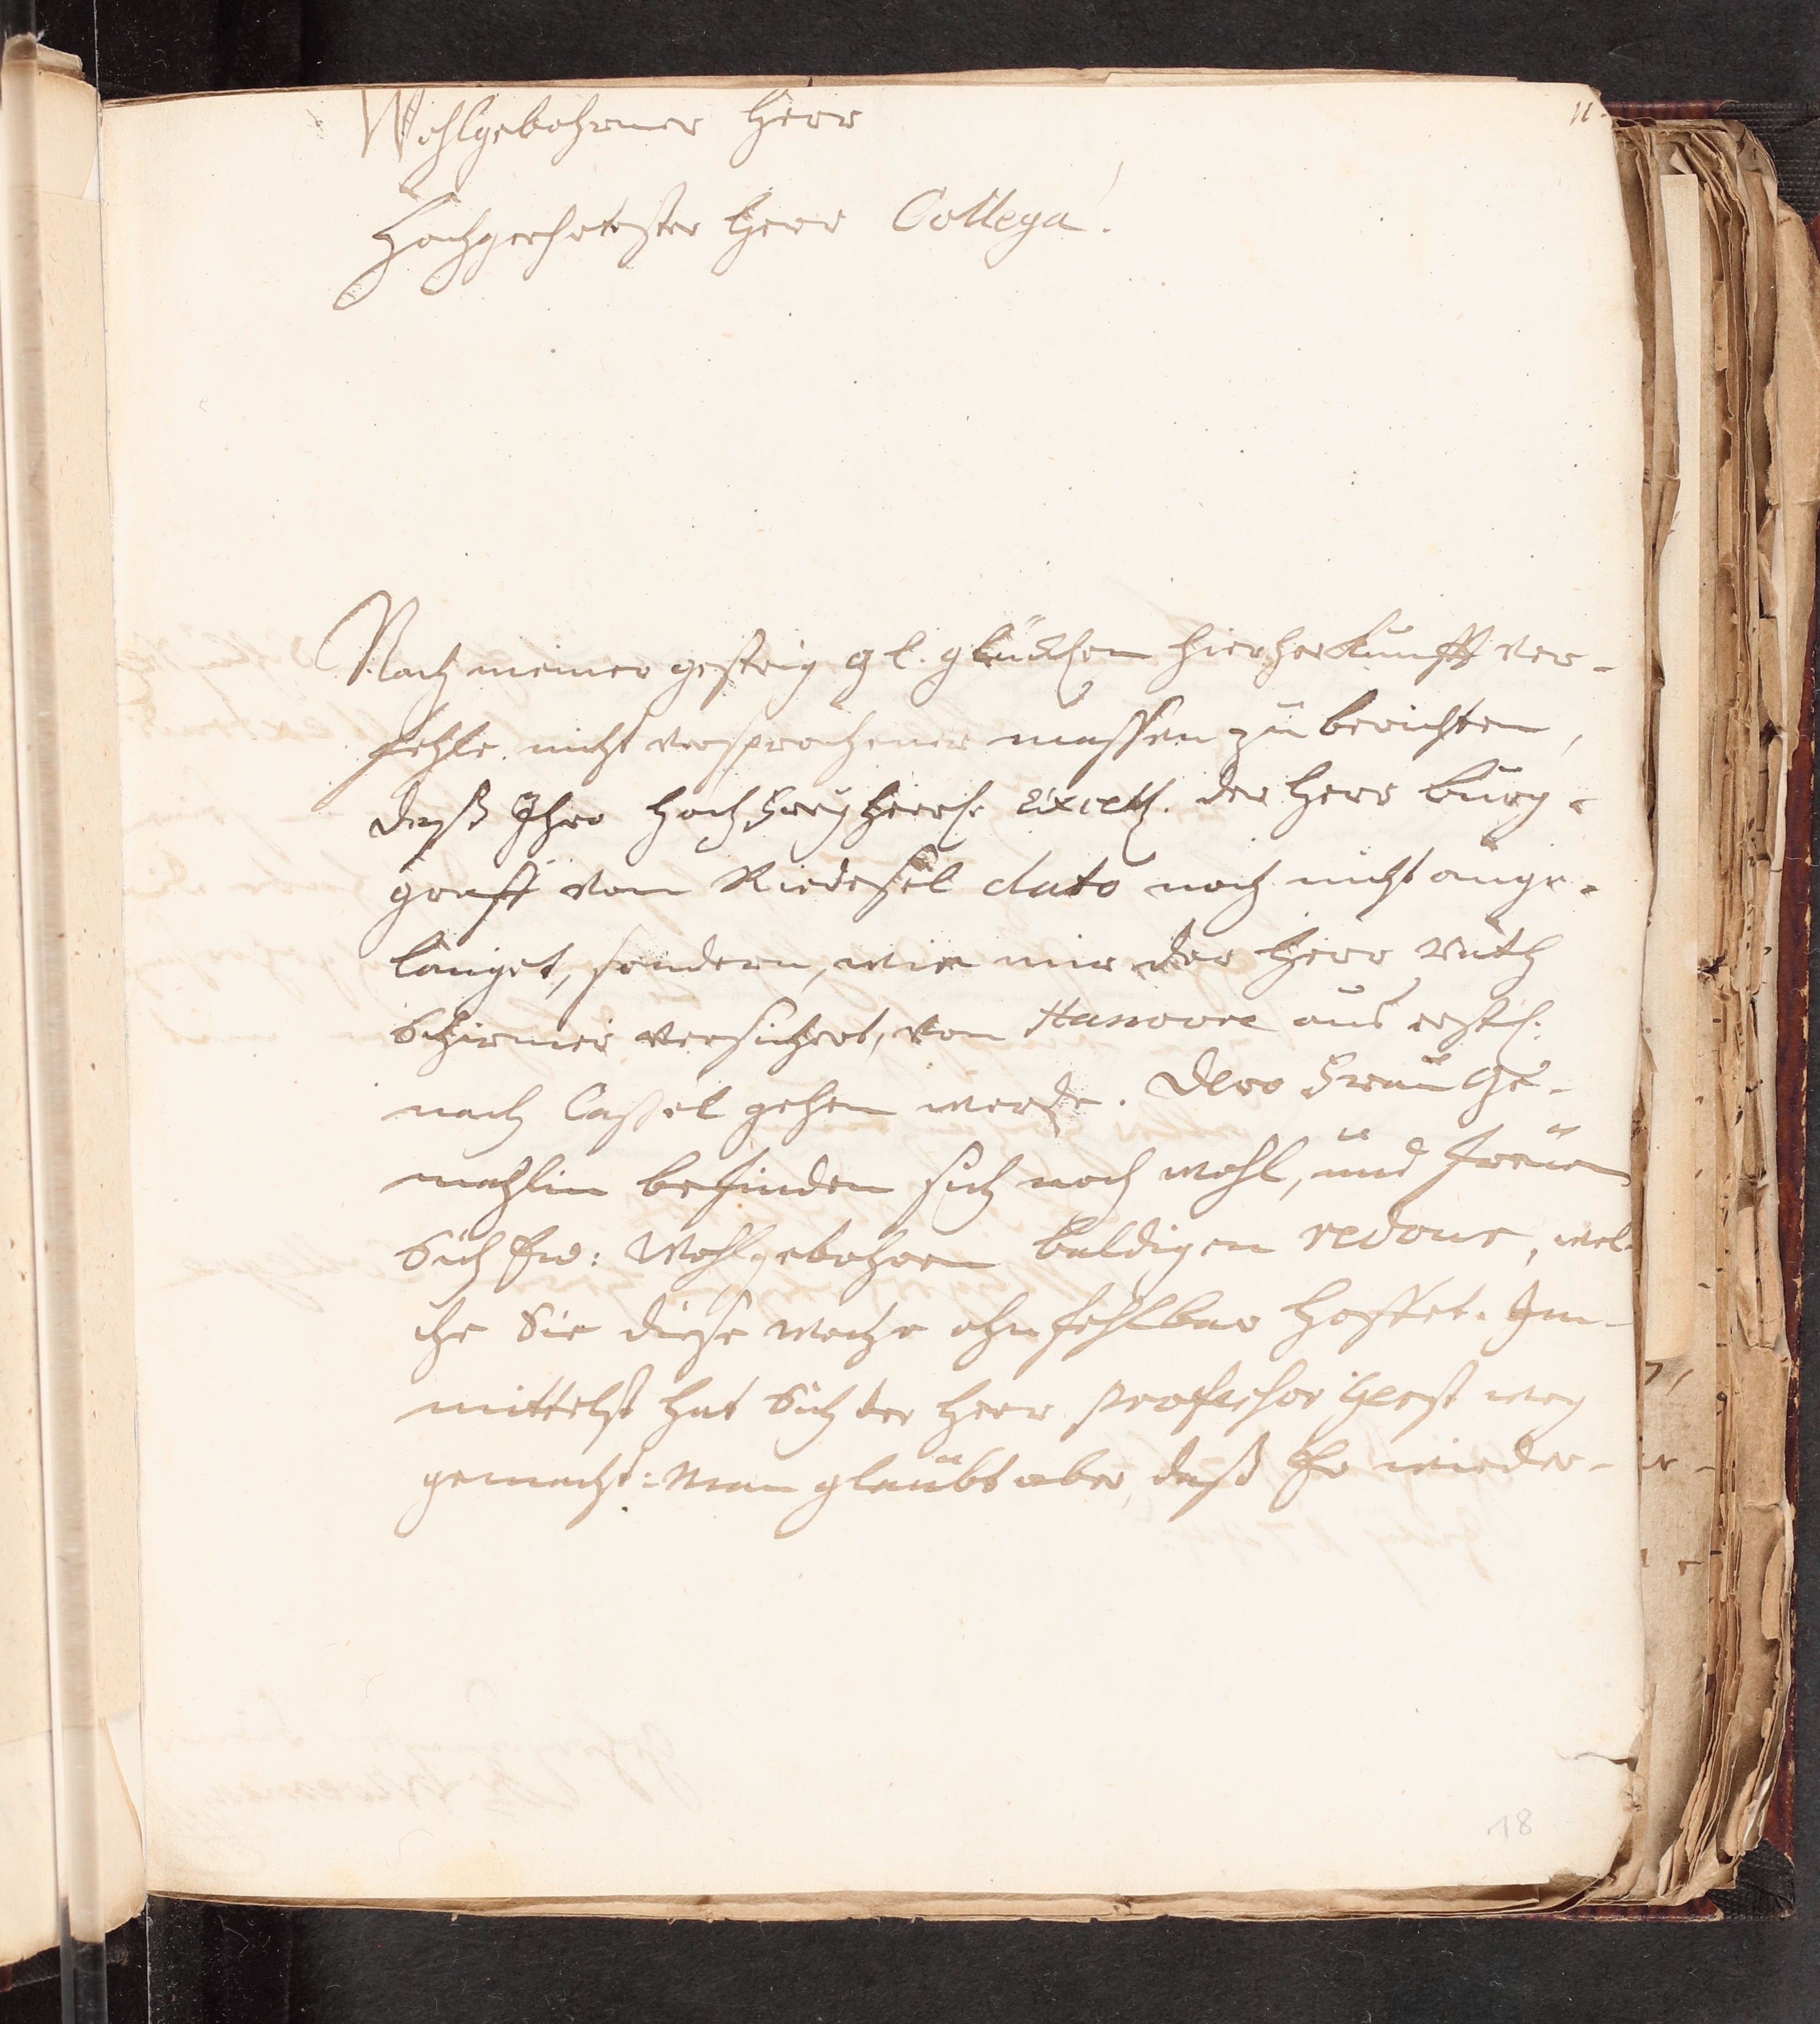 11.
Wohlgebohrner Herr
Hochgeehrtester Herr Collega!
Nach meiner gestrig gl. glücklichen hierherkunfft ver-
fehle nicht versprochener massen zu berichten,
daß Ihro HochFreyherrl. Excell. der Herr Burg-
graff von Riedesel dato noch nicht ange-
langet, sondern, wie mir der Herr Rath
Schirmer versichert, von Hanovre aus erstl.
nach Cassel gehen werde. Dero Frau Ge-
mahlin befinden sich noch wohl, und freuen
Sich Ew: Wohlgebohren baldigen redour, wel-
che Sie diese woche ohnfehlbar hoffet. Im-
mittelst hat Sich der Herr Professor weg
gemacht: Man glaubt aber, daß Er wieder-
18